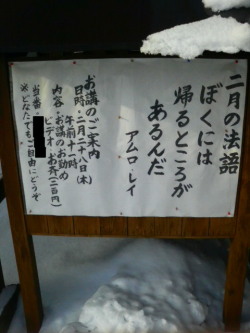 二月の法語
ぼくには
帰るところが
あるんだ
アムロ・レイ
お講のご案内
日時・二月二十八日(木)
午前十一時
内容・お講のお勤め
ビデオ お斎(二百円)
当番・
※どなたでもご自由にどうぞ